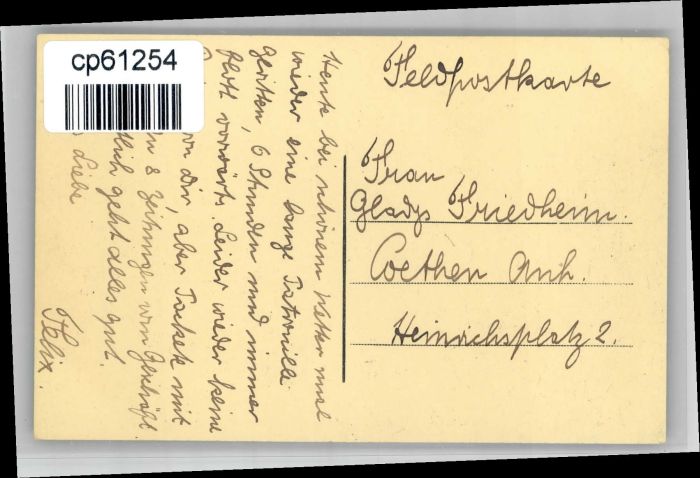 cp61254
Feldpostkarte
Frau
Gladys Friedheim.
Coethen Anh.
Heinrichsplatz 2.
Heute bei schönem Wetter mal
wieder eine lange Patrouille
geritten, 6 Stunden und immer
flott vorwärts. Leider wieder keine
von Dir, aber Pakete mit
8 Zeitungen vom Geschäft
geht alles gut.
Liebe
Felix.